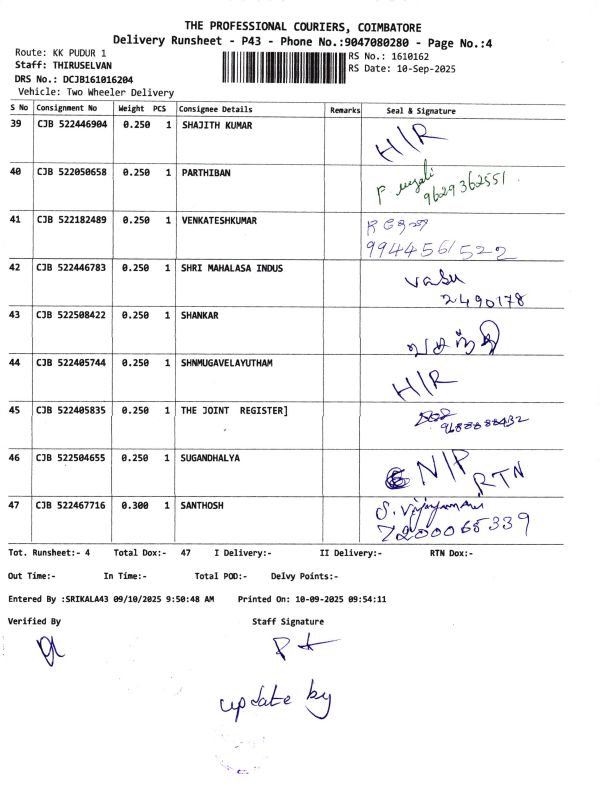 THE PROFESSIONAL COURIERS, COIMBATORE
Delivery Runsheet - P43 - Phone No.:9047080280 - Page No.:4
Route: KK PUDUR 1
RS No.: 1610162
Staff: THIRUSELVAN
RS Date: 10-Sep-2025
DRS No.: DCJB161016204
Vehicle: Two Wheeler Delivery
S No Consignment No Weight PCS Consignee Details Remarks Seal & Signature
39 CJB 522446904 0.250 1 SHAJITH KUMAR H/R
40 CJB 522050658 0.250 1 PARTHIBAN P
9629362551
41 CJB 522182489 0.250 1 VENKATESHKUMAR
9944561522
42 CJB 522446783 0.250 1 SHRI MAHALASA INDUS Vasu
2490178
43 CJB 522508422 0.250 1 SHANKAR
44 CJB 522405744 0.250 1 SHNMUGAVELAYUTHAM H/R
45 CJB 522405835 0.250 1 THE JOINT REGISTER]
46 CJB 522504655 0.250 1 SUGANDHALYA N/P RTN
47 CJB 522467716 0.300 1 SANTHOSH S.
7200065339
Tot. Runsheet:- 4 Total Dox:- 47 I Delivery:- II Delivery:- RTN Dox:-
Out Time:- In Time:- Total POD:- Delvy Points:-
Entered By :SRIKALA43 09/10/2025 9:50:48 AM Printed On: 10-09-2025 09:54:11
Verified By Staff Signature
update by